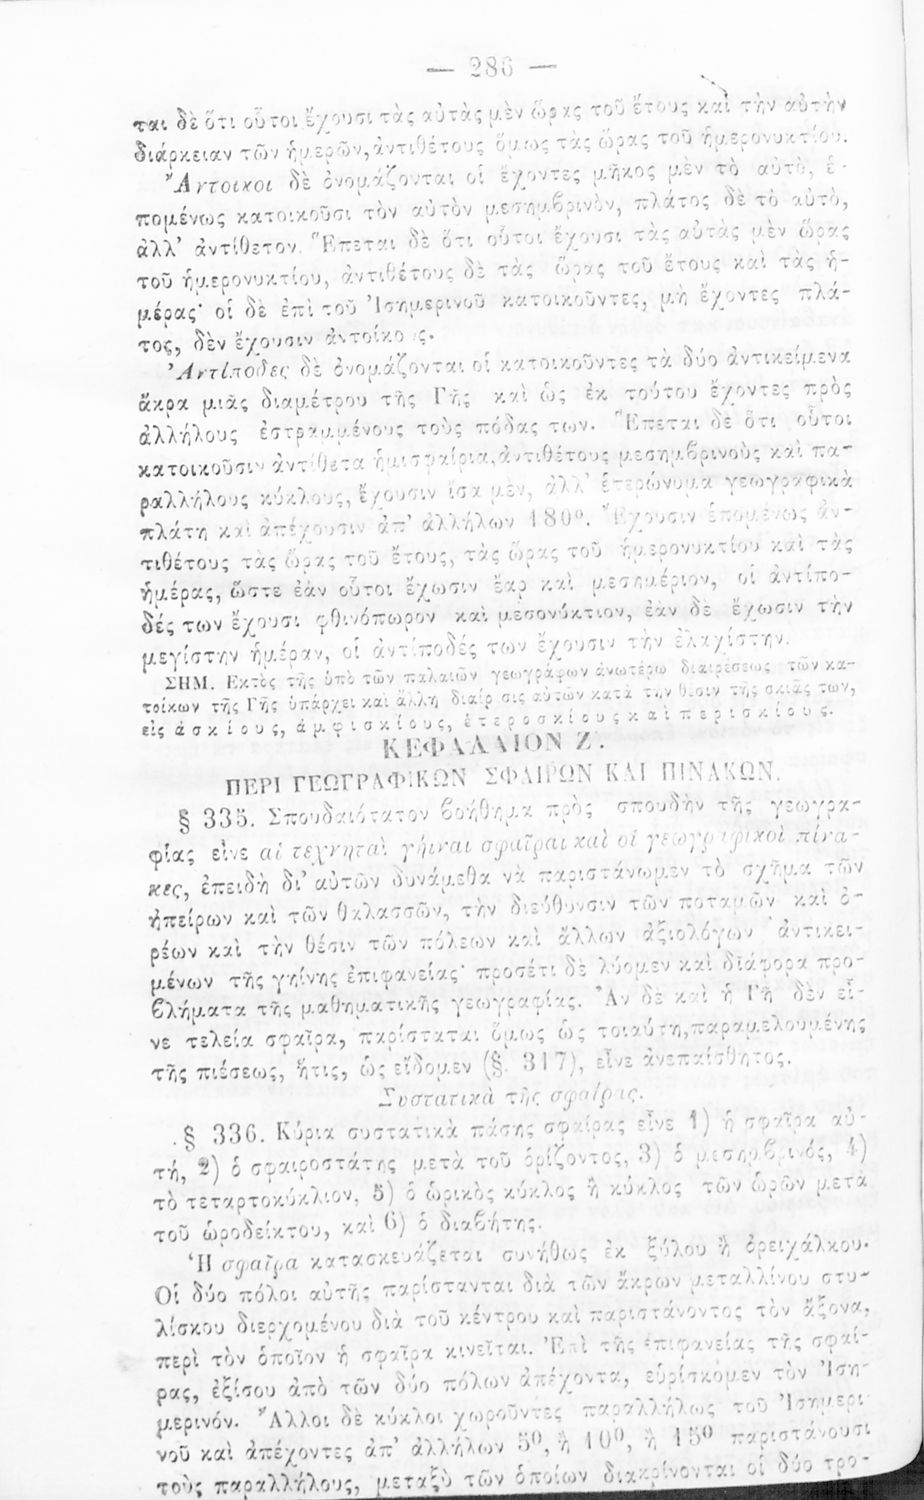 — 286 —
ται δὲ ὅτι οὗτοι ἔχουσι τὰς αὐτὰς μὲν ὥρας τοῦ ἔτους καὶ τὴν αὐτὴν
διάρκειαν τῶν ἡμερῶν, ἀντιθέτους ὅμως τὰς ὥρας τοῦ ἡμερονυκτίου.
Ἄντοικοι δὲ ὀνομάζονται οἱ ἔχοντες μῆκος μὲν τὸ αὐτὸ, ἑ-
πομένως κατοικοῦσι τὸν αὐτὸν μεσημβρινὸν, πλάτος δὲ τὸ αὐτὸ,
ἀλλ’ ἀντίθετον. Ἕπεται δὲ ὅτι οὗτοι ἔχουσι τὰς αὐτὰς μὲν ὥρας
τοῦ ἡμερονυκτίου, ἀντιθέτους δὲ τὰς ὥρας τοῦ ἔτους καὶ τὰς ἡ-
μέρας· οἱ δὲ ἐπὶ τοῦ Ἰσημερινοῦ κατοικοῦντες, μὴ ἔχοντες πλά-
τος, δὲν ἔχουσιν ἀντοίκους.
Ἀντίποδες δὲ ὀνομάζονται οἱ κατοικοῦντες τὰ δύο ἀντικείμενα
ἄκρα μιᾶς διαμέτρου τῆς Γῆς καὶ ὡς ἐκ τούτου ἔχοντες πρὸς
ἀλλήλους ἐστραμμένους τοὺς πόδας των. Ἕπεται δὲ ὅτι οὗτοι
κατοικοῦσιν ἀντίθετα ἡμισφαίρια, ἀντιθέτους μεσημβρινοὺς καὶ πα-
ραλλήλους κύκλους, ἔχουσιν ἴσα μὲν, ἀλλ’ ἑτερώνυμα γεωγραφικὰ
πλάτη καὶ ἀπέχουσιν ἀπ’ ἀλλήλων 180⁰. Ἔχουσιν ἑπομένως ἀν-
τιθέτους τὰς ὥρας τοῦ ἔτους, τὰς ὥρας τοῦ ἡμερονυκτίου καὶ τὰς
ἡμέρας, ὥστε ἐὰν οὗτοι ἔχωσιν ἔαρ καὶ μεσημέριον, οἱ ἀντίπο-
δές των ἔχουσι φθινόπωρον καὶ μεσονύκτιον, ἐὰν δὲ ἔχωσιν τὴν
μεγίστην ἡμέραν, οἱ ἀντίποδές των ἔχουσιν τὴν ἐλαχίστην.
ΣΗΜ. Ἐκτὸς τῆς ὑπὸ τῶν παλαιῶν γεωγράφων ἀνωτέρω διαιρέσεως τῶν κα-
τοίκων τῆς Γῆς ὑπάρχει καὶ ἄλλη διαίρεσις αὐτῶν κατὰ τὴν θέσιν τῆς σκιᾶς των,
εἰς ἀσκίους, ἀμφισκίους, ἑτεροσκίους καὶ περισκίους.
ΚΕΦΑΛΑΙΟΝ Ζ.
ΠΕΡΙ ΓΕΩΓΡΑΦΙΚΩΝ ΣΦΑΙΡΩΝ ΚΑΙ ΠΙΝΑΚΩΝ.
§ 335. Σπουδαιότατον βοήθημα πρὸς σπουδὴν τῆς γεωγρα-
φίας εἶνε αἱ τεχνηταὶ γήιναι σφαῖραι καὶ οἱ γεωγραφικοὶ πίνα-
κες, ἐπειδὴ δι’ αὐτῶν δυνάμεθα νὰ παριστάνωμεν τὸ σχῆμα τῶν
ἠπείρων καὶ τῶν θαλασσῶν, τὴν διεύθυνσιν τῶν ποταμῶν καὶ ὀ-
ρέων καὶ τὴν θέσιν τῶν πόλεων καὶ ἄλλων ἀξιολόγων ἀντικει-
μένων τῆς γηίνης ἐπιφανείας· προσέτι δὲ λύομεν καὶ διάφορα προ-
βλήματα τῆς μαθηματικῆς γεωγραφίας. Ἂν δὲ καὶ ἡ Γῆ δὲν εἶ-
νε τελεία σφαῖρα, παρίσταται ὅμως ὡς τοιαύτη, παραμελουμένης
τῆς πιέσεως, ἥτις, ὡς εἴδομεν (§. 317), εἶνε ἀνεπαίσθητος.
Συστατικὰ τῆς σφαίρας.
§ 336. Κύρια συστατικὰ πάσης σφαίρας εἶνε 1) ἡ σφαῖρα αὐ-
τή, 2) ὁ σφαιροστάτης μετὰ τοῦ ὁρίζοντος, 3) ὁ μεσημβρινός, 4)
τὸ τεταρτοκύκλιον, 5) ὁ ὡρικὸς κύκλος ἢ κύκλος τῶν ὡρῶν μετὰ
τοῦ ὡροδείκτου, καὶ 6) ὁ διαβήτης.
Ἡ σφαῖρα κατασκευάζεται συνήθως ἐκ ξύλου ἢ ὀρειχάλκου.
Οἱ δύο πόλοι αὐτῆς παρίστανται διὰ τῶν ἄκρων μεταλλίνου στυ-
λίσκου διερχομένου διὰ τοῦ κέντρου καὶ παριστάνοντος τὸν ἄξονα,
περὶ τὸν ὁποῖον ἡ σφαῖρα κινεῖται. Ἐπὶ τῆς ἐπιφανείας τῆς σφαί-
ρας, ἐξίσου ἀπὸ τῶν δύο πόλων ἀπέχοντα, εὑρίσκομεν τὸν Ἰση-
μερινόν. Ἄλλοι δὲ κύκλοι χωροῦντες παραλλήλως τοῦ Ἰσημερι-
νοῦ καὶ ἀπέχοντες ἀπ’ ἀλλήλων 5⁰, ἢ 10⁰, ἢ 15⁰ παριστάνουσι
τοὺς παραλλήλους, μεταξὺ τῶν ὁποίων διακρίνονται οἱ δύο τρο-